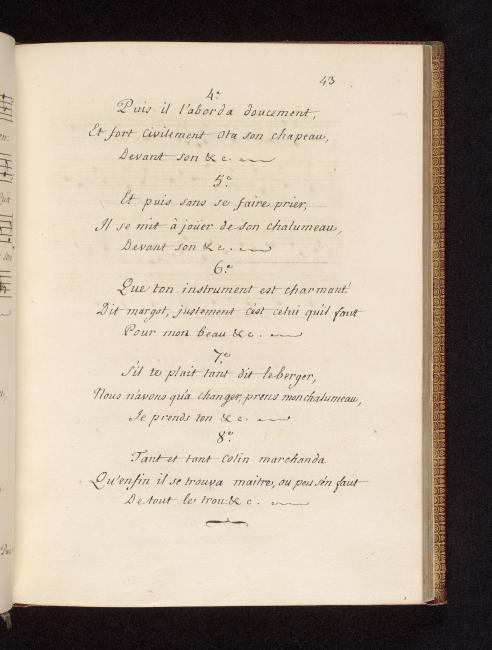 43
4.e
Puis il l'aborda doucement,
Et fort civilement ota son chapeau,
Devant son &c.
5.e
Et puis sans se faire prier,
Il se mit à joüer de son chalumeau,
Devant son &c.
6.e
Que ton instrument est charmant
Dit margot, justement c'est celui qu'il faut
Pour mon beau &c.
7.e
S'il te plait tant dit le berger,
Nous n'avons qu'a changer, prens mon chalumeau,
Je prends ton &c.
8.e
Tant et tant Colin marchanda
Qu'enfin il se trouva maitre, ou peu s'en faut
De tout le trou &c.